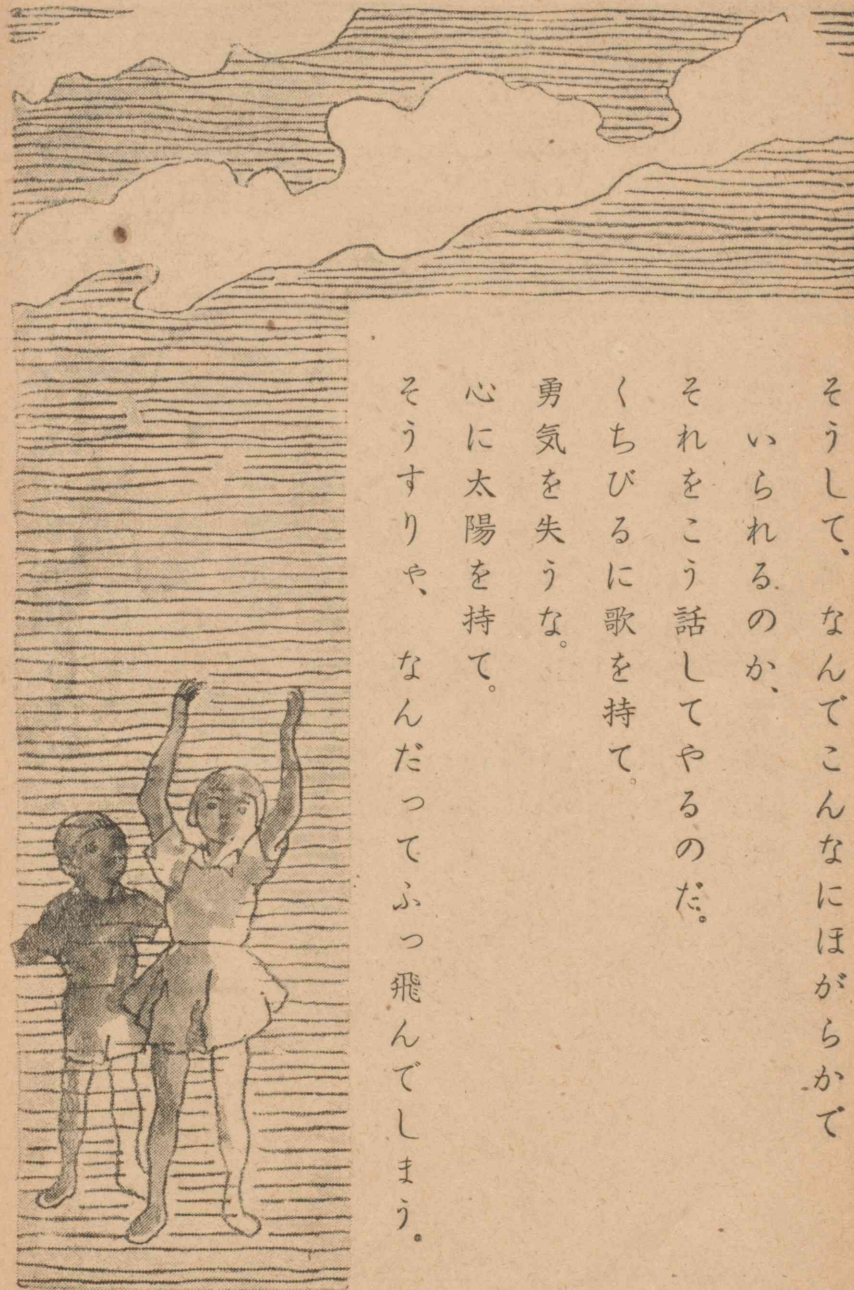 そうして、なんでこんなにほがらかで
いられるのか、
それをこう話してやるのだ。
くちびるに歌を持て。
勇気を失うな。
心に太陽を持て。
そうすりゃ、なんだってふっ飛んでしまう。